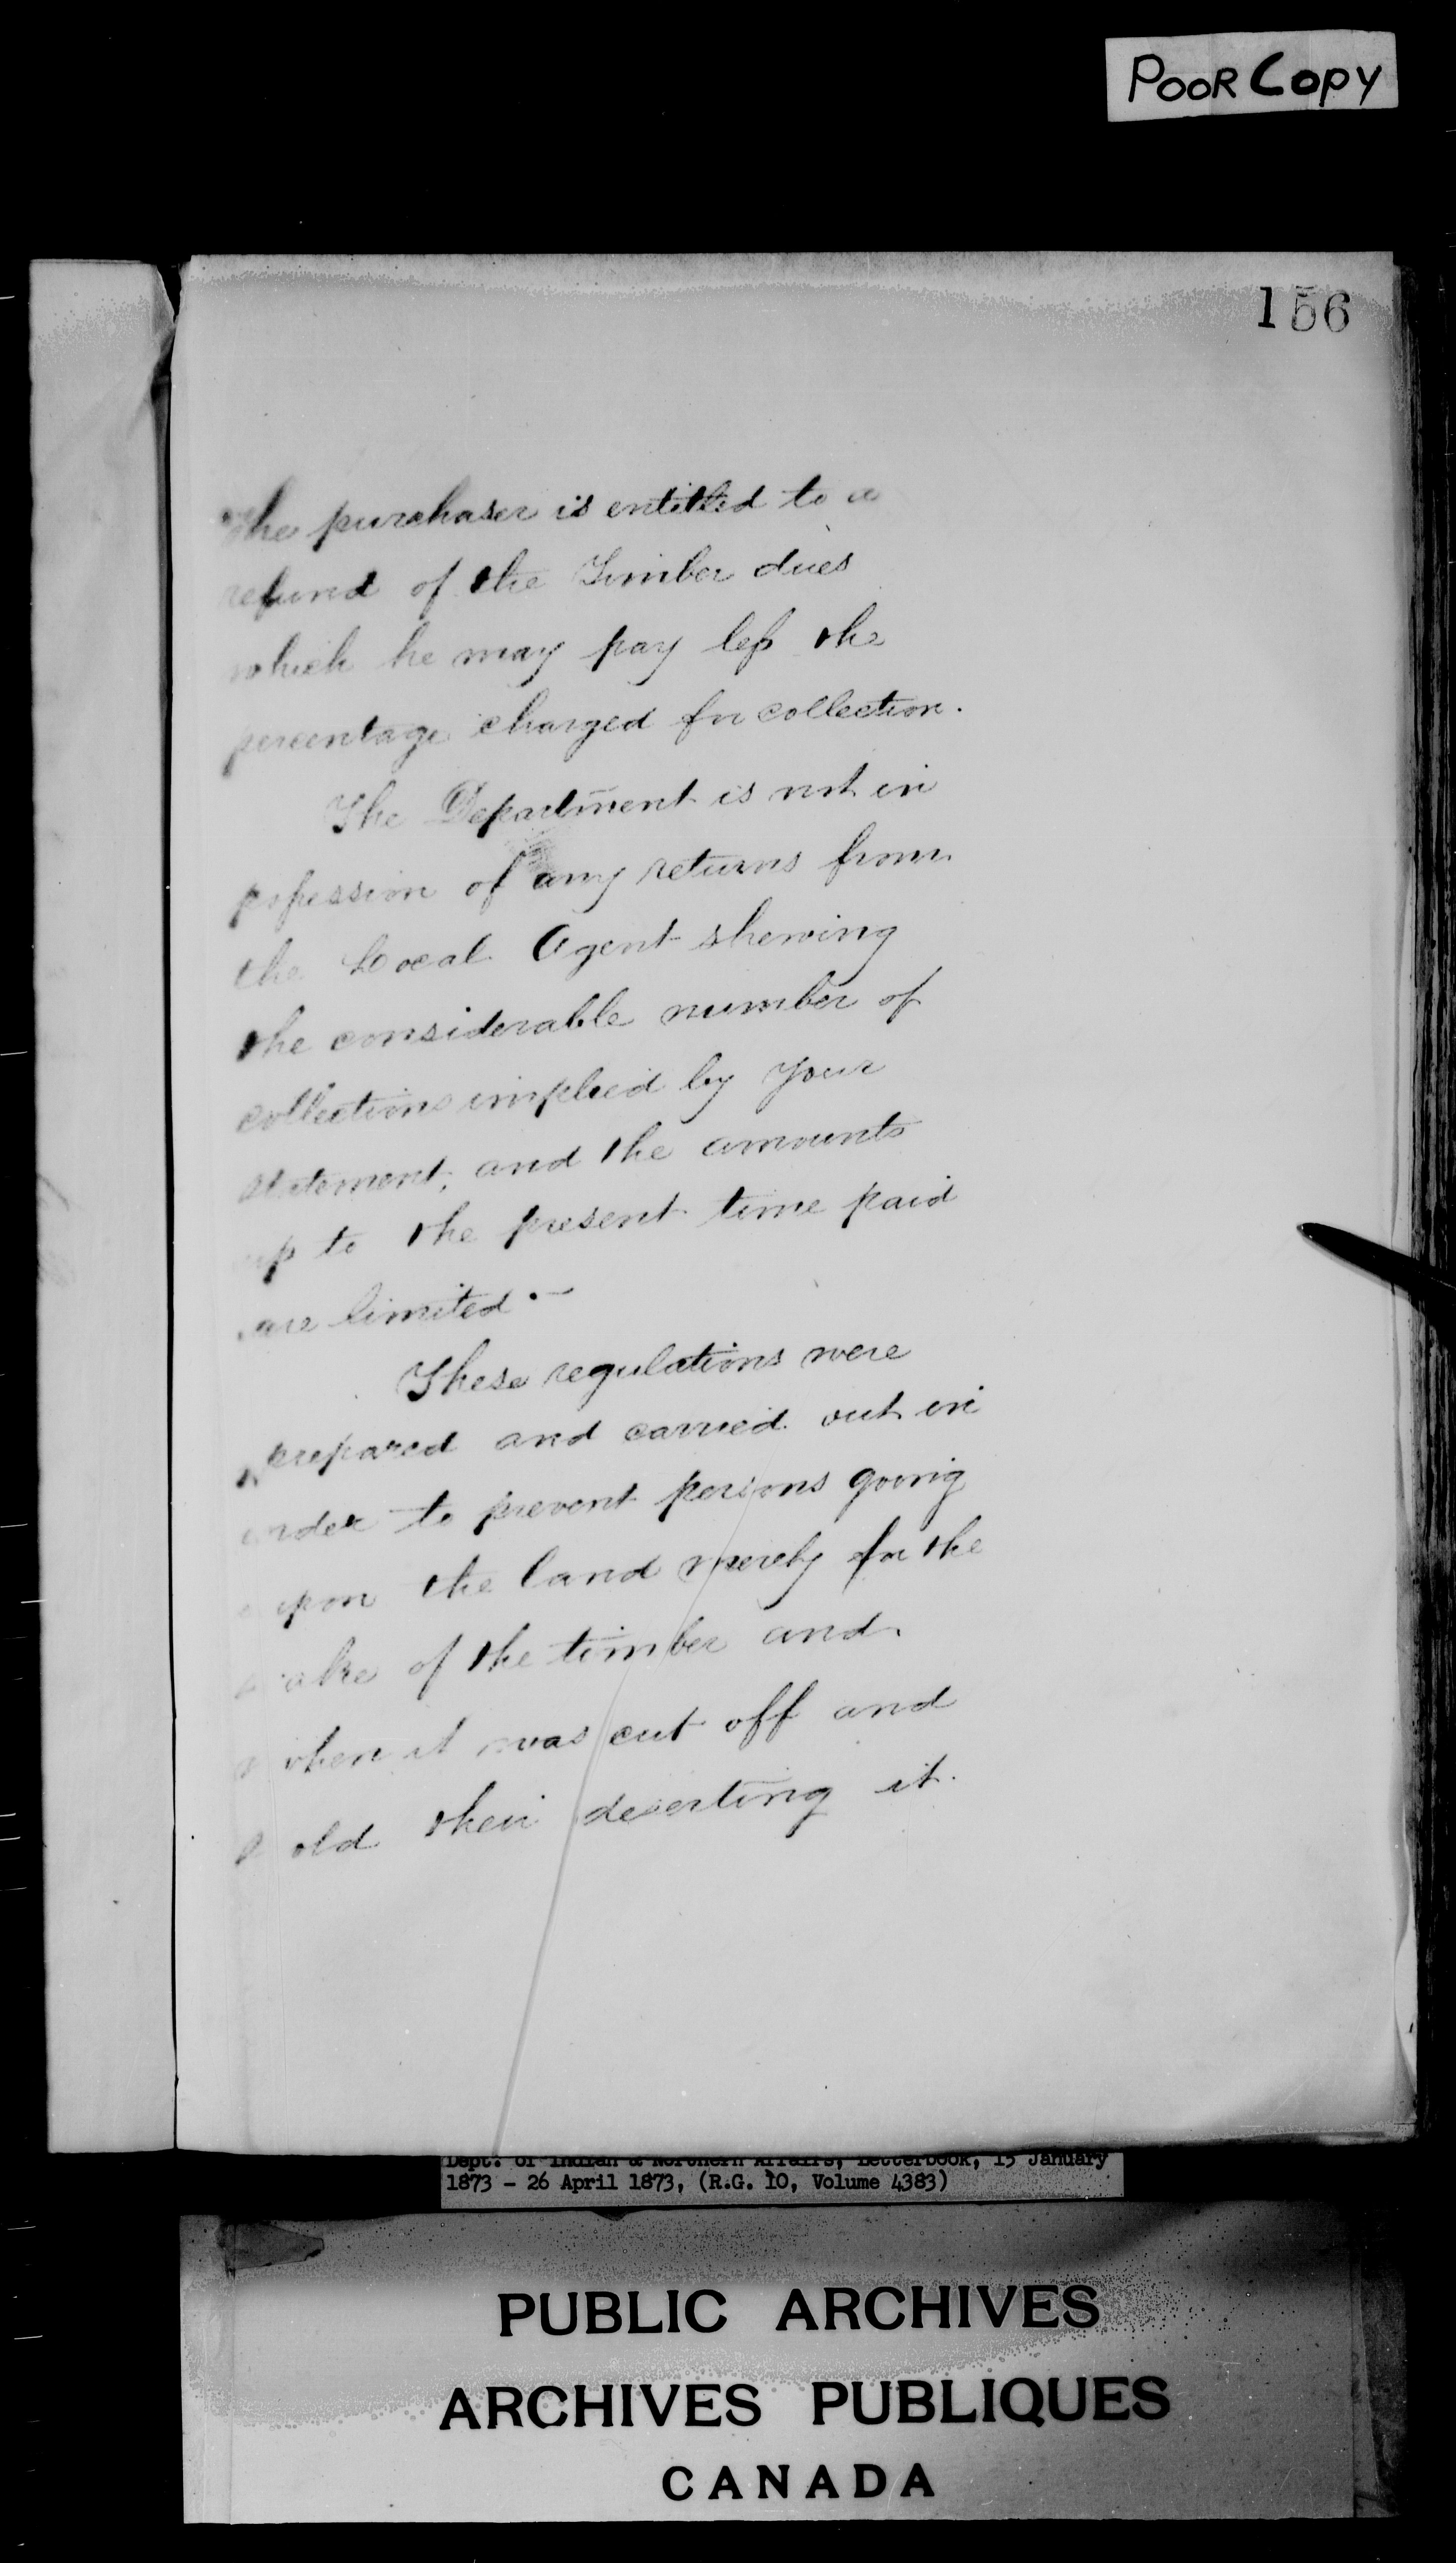 POOR COPY
156
The purchaser is entitled to a
refund of the Timber dues
which he may pay less the
percentage charged for collection.
The Department is not in
possession of any returns from
the Local Agent shewing
the considerable number of
collections implied by your
statement, and the amounts
up to the present time paid
are limited. —
These regulations were
prepared and carried out in
order to prevent persons going
upon the land merely for the
sake of the timber and
when it was cut off and
sold their deserting it.
Dept. of Indian & Northern Affairs, Letterbook, 15 January
1873 - 26 April 1873, (R.G. 10, Volume 4383)
PUBLIC ARCHIVES
ARCHIVES PUBLIQUES
CANADA